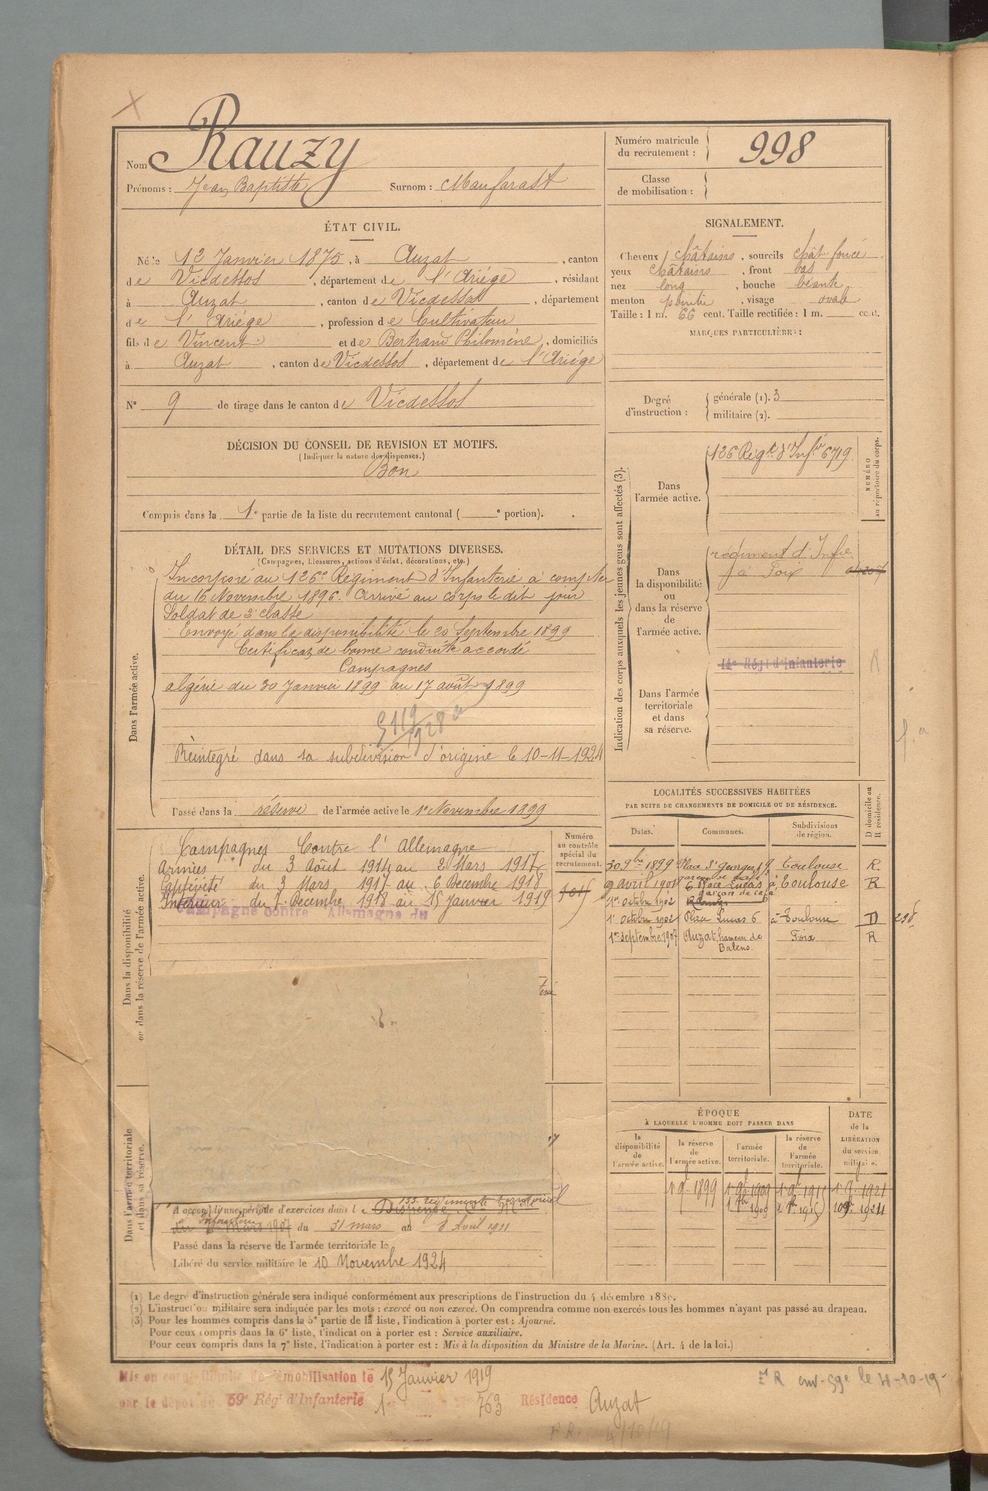 Nom Rauzy
Prénoms : Jean Baptiste Surnom :
Numéro matricule du recrutement : 998
Classe de mobilisation :
ÉTAT CIVIL.
Né le 12 Janvier 1875, à Auzat, canton
de Vicdessos, département de l'Ariège, résidant
à Auzat, canton de Vicdessos, département
de l'Ariège, profession de Cultivateur
fils de Vincent et de Bertrand Philomène, domiciliés
à Auzat, canton de Vicdessos, département de l'Ariège
N° 9 de tirage dans le canton de Vicdessos
SIGNALEMENT.
Cheveux châtains, sourcils chât foncé
yeux châtains, front bas
nez long, bouche béante
menton pointu, visage ovale
Taille : 1 m. 66 cent. Taille rectifiée : 1 m. cent.
MARQUES PARTICULIÈRES :
Degré d'instruction : générale (1). 3
militaire (2).
DÉCISION DU CONSEIL DE REVISION ET MOTIFS.
(Indiquer la nature des dispenses.)
Bon
Compris dans la 1e partie de la liste du recrutement cantonal ( e portion).
DÉTAIL DES SERVICES ET MUTATIONS DIVERSES.
(Campagnes, blessures, actions d'éclat, décorations, etc.)
Dans l'armée active.
Incorporé au 126e Régiment d'Infanterie à compter
du 16 Novembre 1896. Arrivé au corps le dit jour
Soldat de 2e classe
Envoyé dans la disponibilité le 20 Septembre 1899
Certificat de bonne conduite accordé
Campagnes
algérie du 30 Janvier 1899 au 17 août 1899
Réintégré dans sa subdivision d'origine le 10-11-1924
Passé dans la réserve de l'armée active le 1er Novembre 1899
Indication des corps auxquels les jeunes gens sont affectés (3).
Dans l'armée active.
126 Régt d'Infrie 6719
NUMÉRO au répertoire du corps.
Dans la disponibilité ou dans la réserve de l'armée active.
régiment d'Infie
à Foix
Dans l'armée territoriale et dans sa réserve.
14e Régt d'Infanterie
R
Dans la disponibilité ou dans la réserve de l'armée active.
Campagnes Contre l'Allemagne
Armées du 3 Août 1914 au 2 Mars 1917
Captivité du 3 Mars 1917 au 6 Décembre 1918
Intérieur du 7 Décembre 1918 au 15 janvier 1919
Campagne contre Allemagne du
Numéro au contrôle spécial du recrutement.
LOCALITÉS SUCCESSIVES HABITÉES
PAR SUITE DE CHANGEMENTS DE DOMICILE OU DE RÉSIDENCE.
Dates. Communes. Subdivisions de région. D domicile ou R résidence.
30 9bre 1899 Place St Georges Toulouse R
9 avril 1901 6 Place Lucas à Toulouse R
1er Octobre 1902
1er Octobre 1902 Place Lucas 6 à Toulouse D
1er septembre 1907 Auzat hameau de Foix R
ÉPOQUE
À LAQUELLE L'HOMME DOIT PASSER DANS
la disponibilité de l'armée active. la réserve de l'armée active. l'armée territoriale. la réserve de l'armée territoriale.
DATE de la LIBÉRATION du service militaire.
Dans l'armée territoriale et dans sa réserve.
A accompli une période d'exercices dans le
du 31 mars au 8 Avril 1911
Passé dans la réserve de l'armée territoriale le
Libéré du service militaire le 10 Novembre 1924
(1) Le degré d'instruction générale sera indiqué conformément aux prescriptions de l'instruction du 4 décembre 1889.
(2) L'instruction militaire sera indiquée par les mots : exercé ou non exercé. On comprendra comme non exercés tous les hommes n'ayant pas passé au drapeau.
(3) Pour les hommes compris dans la 5e partie de la liste, l'indication à porter est : Ajourné.
Pour ceux compris dans la 6e liste, l'indication à porter est : Service auxiliaire.
Pour ceux compris dans la 7e liste, l'indication à porter est : Mis à la disposition du Ministre de la Marine. (Art. 4 de la loi.)
Mis en congé illimité de démobilisation le 15 Janvier 1919
par le dépôt du 59e Rég d'Infanterie 763 Résidence Auzat